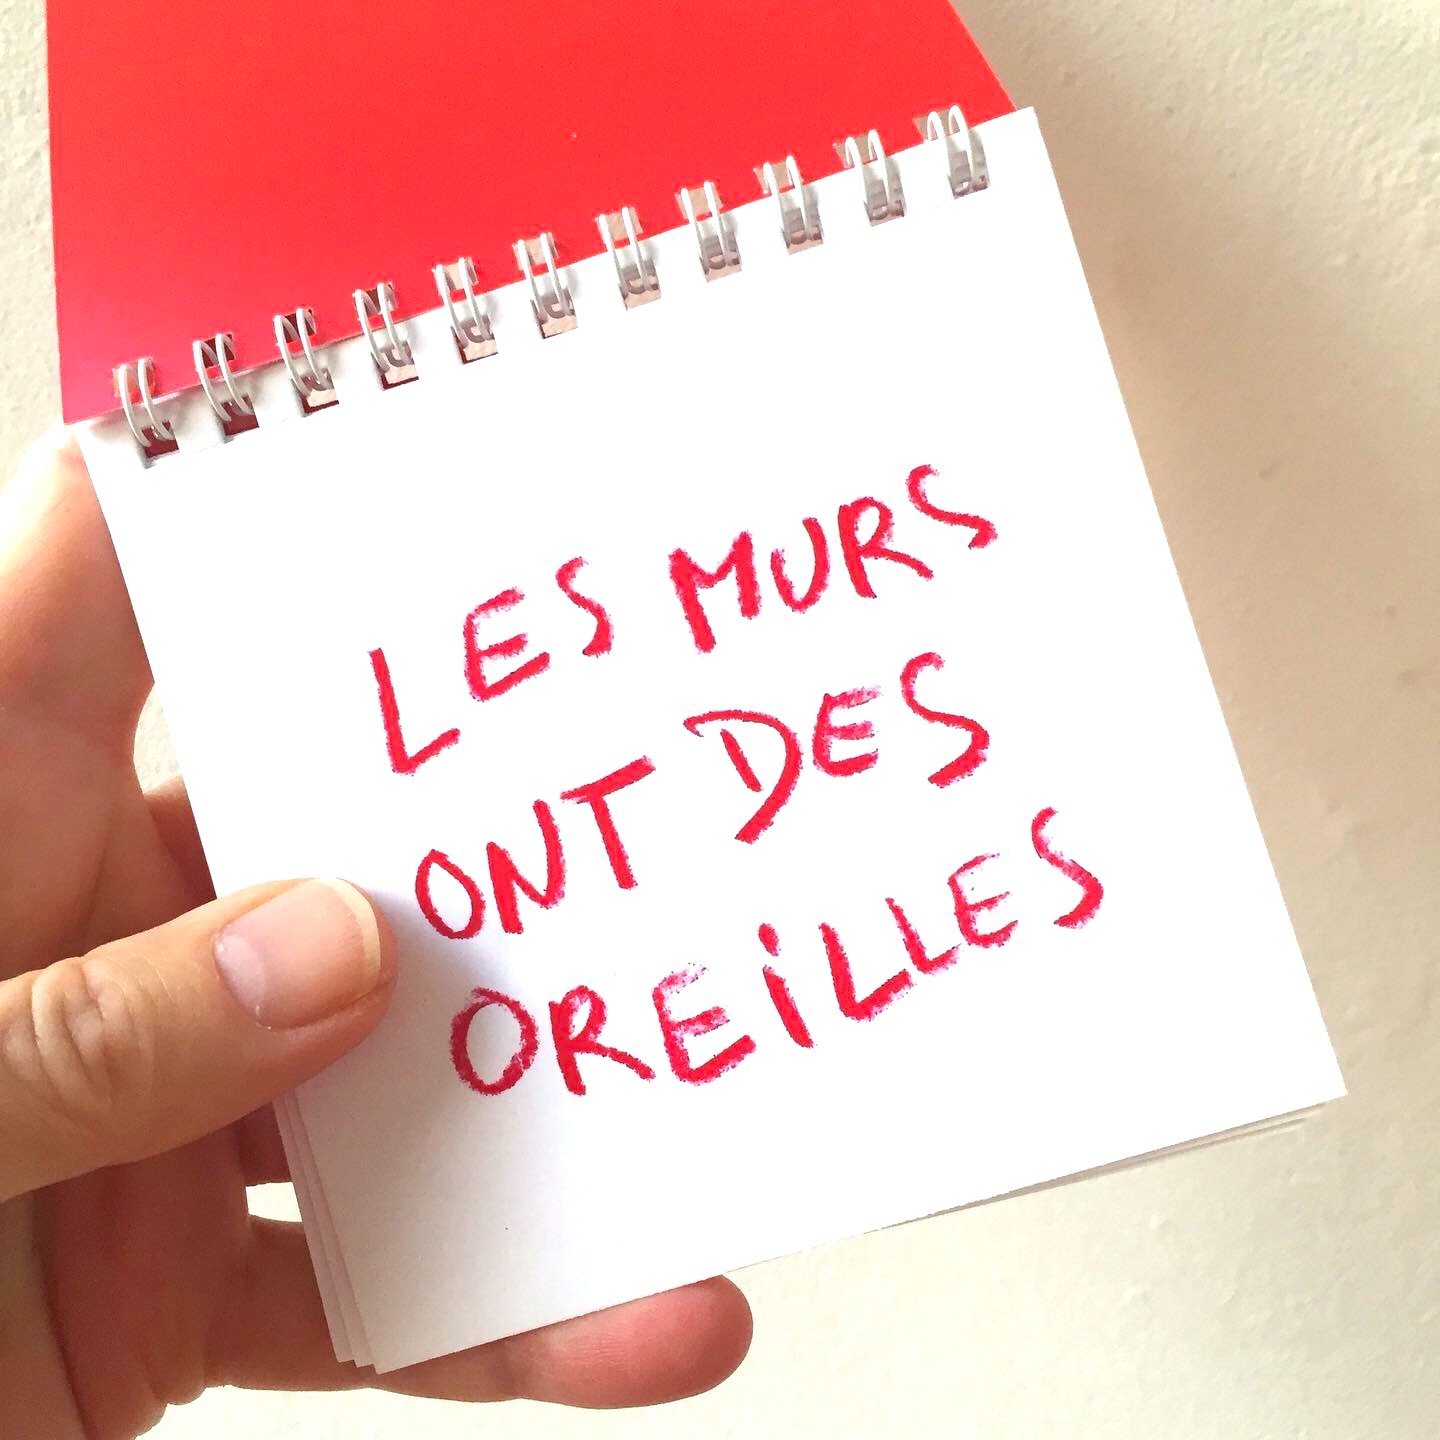 LES MURS
ONT DES
OREiLLES